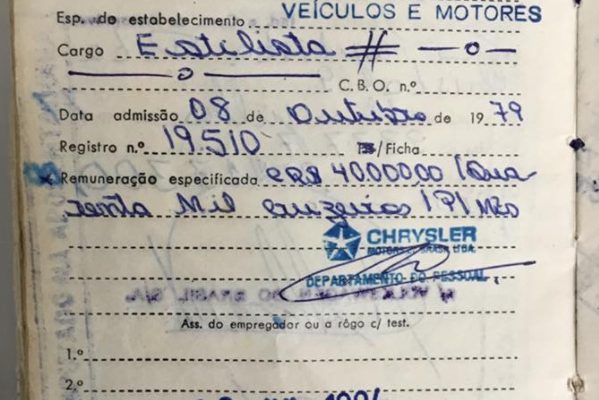 Esp. do estabelecimento VEÍCULOS E MOTORES
Cargo Estilista # — o —
— o — C.B.O. n.º
Data admissão 08 de Outubro de 19 79
Registro n.º 19.510 Fls/Ficha
Remuneração especificada CR$ 40000,00 (Qua
renta Mil Cruzeiros) P/ Mês
CHRYSLER
MOTORS DO BRASIL LTDA.
DEPARTAMENTO DO PESSOAL
Ass. do empregador ou a rôgo c/ test.
1.º
2.º